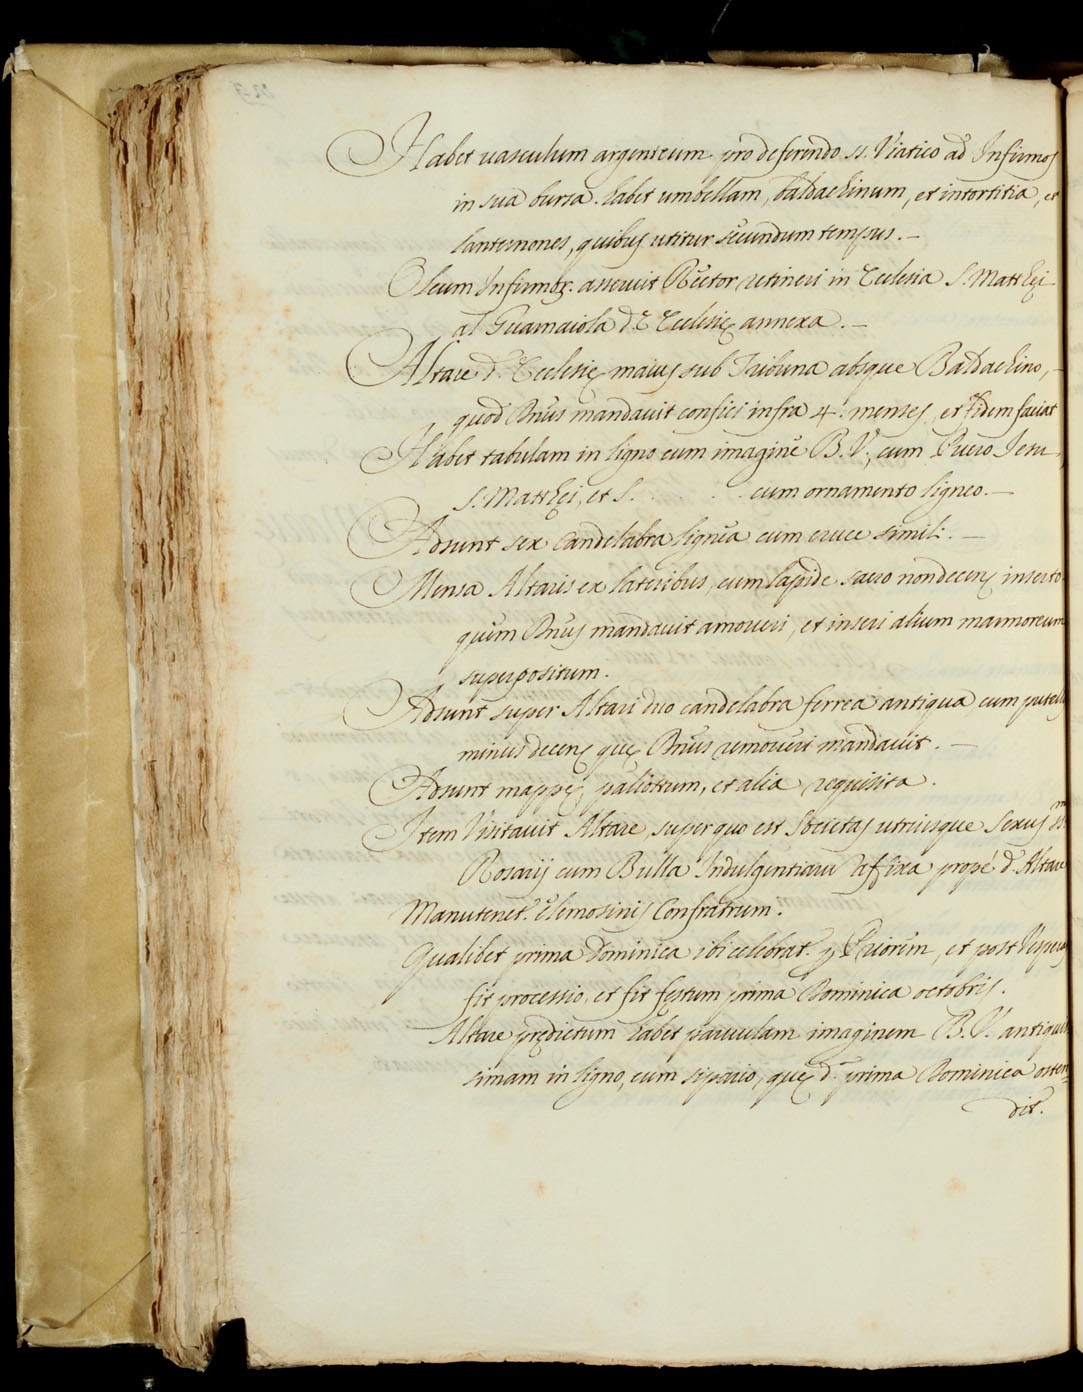 Habet uasculum argenteum pro deferendo ss. Viatico ad Infirmos
in sua bursa. habet umbellam, baldachinum, et intortitia, et
lanternones, quibus utitur secundum tempus. —
Oleum Infirmor. asseruit Rector retineri in Ecclesia S. Matthęi
al Guamaiola d.ę Ecclesię annexa. —
Altare d. Ecclesię maius sub Tribuna absque Baldachino, —
quod Dnus mandauit confici infra 4. menses, et fidem faciat
Habet tabulam in ligno cum imagine B. V., cum Puero Iesu,
S. Matthęi, et S. . . . . cum ornamento ligneo. —
Adsunt sex candelabra lignea cum cruce simili. —
Mensa Altaris ex lateribus, cum lapide sacro non decenę inserto
quem Dnus mandauit amoueri, et inseri alium marmoreum
superpositum.
Adsunt super Altari duo candelabra ferrea antiqua, cum
minus decenę quę Dnus remoueri mandauit. —
Adsunt mappę, paliottum, et alia requisita.
Item Visitauit Altare, super quo est Societas utriusque sexus ss.mi
Rosarij cum Bulla Indulgentiaru affixa propé d. Altare
Manutenet. elemosinis Confratrum.
Qualibet prima Dominica ibi celebrat. p Priorem, et post Vesperas
fit processio, et fit festum prima Dominica octobris.
Altare prędictum habet paruulam imaginem B. V. antiquis
simam in ligno, cum sipario, quę d. prima Dominica osten
dit.